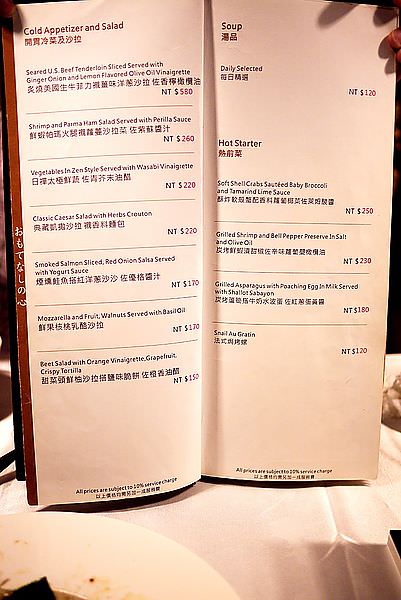 Cold Appetizer and Salad
開胃冷菜及沙拉
Seared U.S. Beef Tenderloin Sliced Served with
Ginger Onion and Lemon Flavored Olive Oil Vinaigrette
炙燒美國生牛菲力襯薑味洋蔥沙拉 佐香檸橄欖油
NT $580
Shrimp and Parma Ham Salad Served with Perilla Sauce
鮮蝦帕瑪火腿襯蘿蔓沙拉菜 佐紫蘇醬汁
NT $260
Vegetables In Zen Style Served with Wasabi Vinaigrette
日禪太極鮮蔬 佐青芥末油醋
NT $220
Classic Caesar Salad with Herbs Crouton
典藏凱撒沙拉 襯香料麵包
NT $220
Smoked Salmon Sliced, Red Onion Salsa Served
with Yogurt Sauce
煙燻鮭魚搭紅洋蔥沙沙 佐優格醬汁
NT $170
Mozzarella and Fruit, Walnuts Served with Basil Oil
鮮果核桃乳酪沙拉
NT $170
Beet Salad with Orange Vinaigrette, Grapefruit,
Crispy Tortilla
甜菜頭鮮柚沙拉搭鹽味脆餅 佐橙香油醋
NT $150
All prices are subject to 10% service charge
以上價格均需另加一成服務費
おもてなしの心
Soup
湯品
Daily Selected
每日精選
NT $120
Hot Starter
熱前菜
Soft Shell Crabs Sautéed Baby Broccoli
and Tamarind Lime Sauce
酥炸軟殼蟹配香料蘿蔔椰菜佐萊姆酸醬
NT $250
Grilled Shrimp and Bell Pepper Preserve In Salt
and Olive Oil
NT $230
Grilled Asparagus with Poaching Egg In Milk Served
with Shallot Sabayon
炭烤蘆筍搭牛奶水波蛋 佐紅蔥蛋黃醬
NT $180
Snail Au Gratin
法式焗烤螺
NT $120
All prices are subject to 10% service charge
以上價格均需另加一成服務費